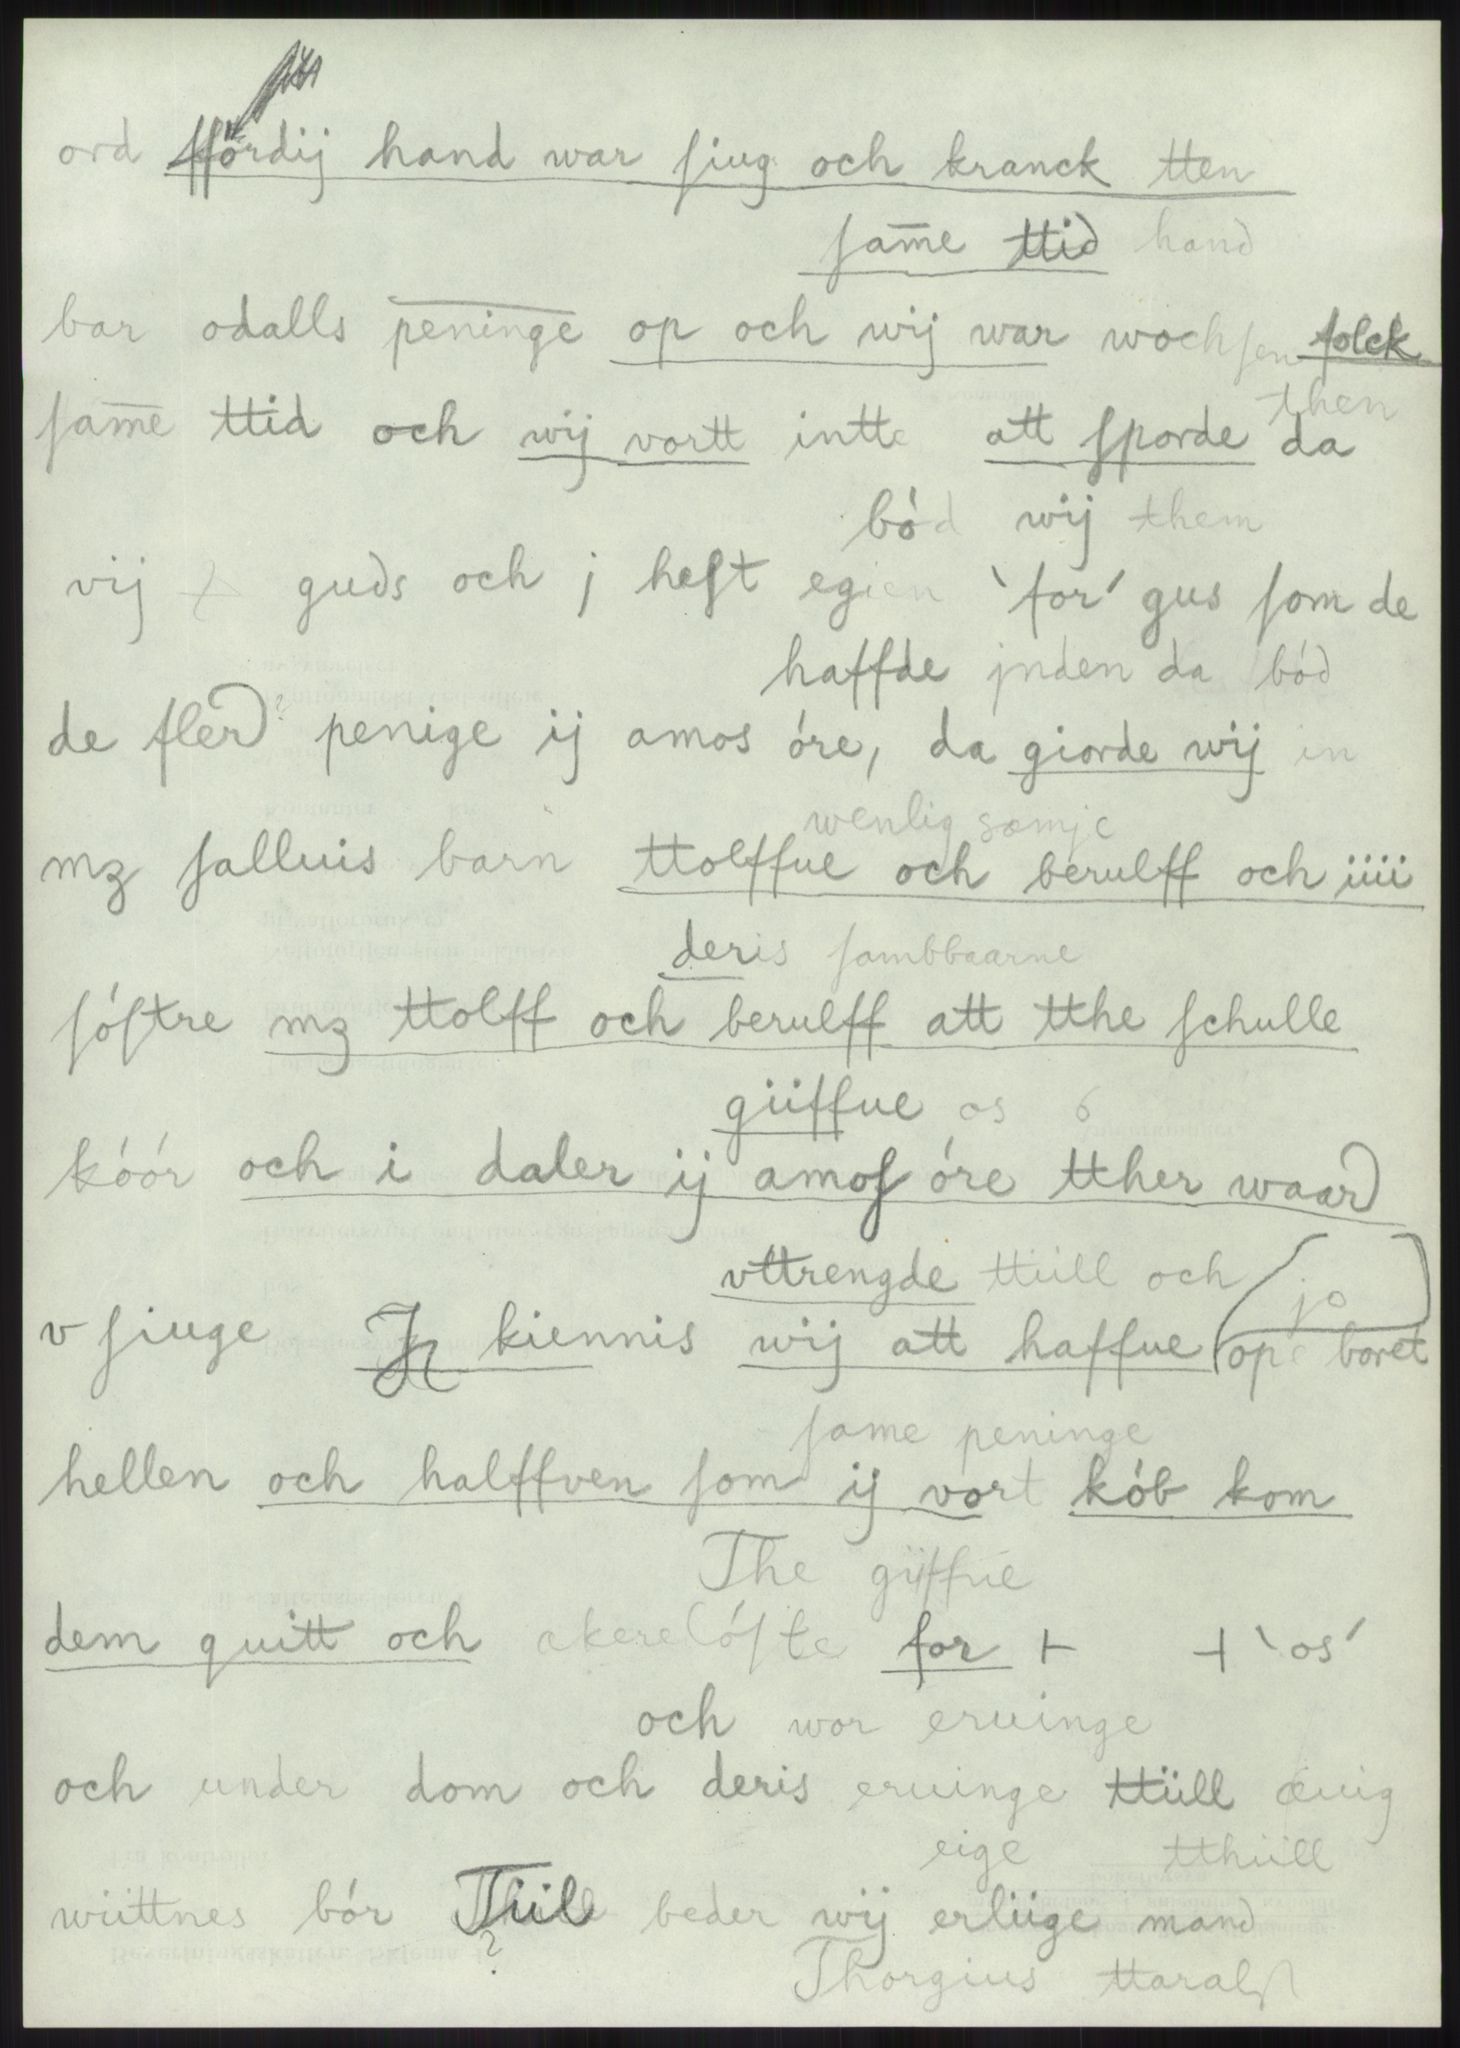 ord ffördij hand war siug och kranck tten
sam̄e ttid hand
bar odalls peninge op och wij war wochsen folck
sam̄e ttid och wij vortt intte att sporde da
then
bód wij them
vij guds och j heft egien `for´ gus som de
haffde jnden da bód
de flerd? penige ij amos óre, da giorde wij in
wenlig somje
mz salluis barn ttolffue och berulff och iiii
deris sambbaarne
sóstre mz ttolff och berulff att tthe schulle
giiffue os 6
kóór och i daler ij amos óre tther waard
vttrengde ttiill och
v siuge kiennis wij att haffue ope boret
jo
same peninge
hellen och halffven som ij vort kób kom
The giiffue
dem quitt och akerelóste for ⊢ ⊣ `os´
och wor eruinge
och under dom och deris eruinge ttiill æuig
eige tthiill
wiittnes bór Tiil beder wij erliige mand
?
Thorgius ttarals